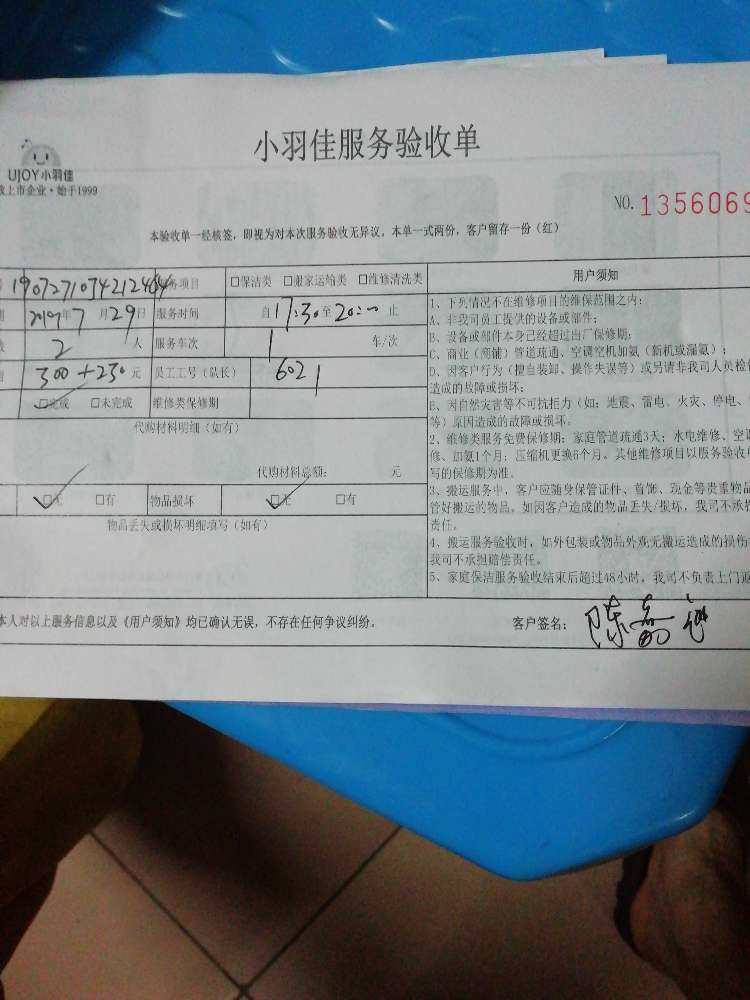 小羽佳服务验收单
UJOY小羽佳
上市企业·始于1999
NO. 1356069
本验收单一经核签，即视为对本次服务验收无异议。本单一式两份，客户留存一份（红）
务项目 □保洁类 □搬家运输类 □维修清洗类
2019年7月29日 服务时间 自17:30至20:00止
2人 服务车次 1车/次
300+230元 员工工号（队长） 6021
□完成 □未完成 维修类保修期
代购材料明细（如有）
代购材料总额： 元
□无 □有 物品损坏 □无 □有
物品丢失或损坏明细填写（如有）
用户须知
1、下列情况不在维修项目的维保范围之内：
A、非我司员工提供的设备或部件；
B、设备或部件本身已经超过出厂保修期；
C、商业（商铺）管道疏通、空调空机加氟（新机或漏氟）；
D、因客户行为（擅自装卸、操作失误等）或另请非我司人员检
造成的故障或损坏；
E、因自然灾害等不可抗拒力（如：地震、雷电、火灾、停电、
等）原因造成的故障或损坏。
2、维修类服务免费保修期：家庭管道疏通3天；水电维修、空
修、加氟1个月；压缩机更换6个月。其他维修项目以服务验收
写的保修期为准。
3、搬运服务中，客户应随身保管证件、首饰、现金等贵重物品
管好搬运的物品。如因客户造成的物品丢失/损坏，我司不承
责任。
4、搬运服务验收时，如外包装或物品外观无搬运造成的损伤
我司不承担赔偿责任。
5、家庭保洁服务验收结束后超过48小时，我司不负责上门返
本人对以上服务信息以及《用户须知》均已确认无误，不存在任何争议纠纷。 客户签名：